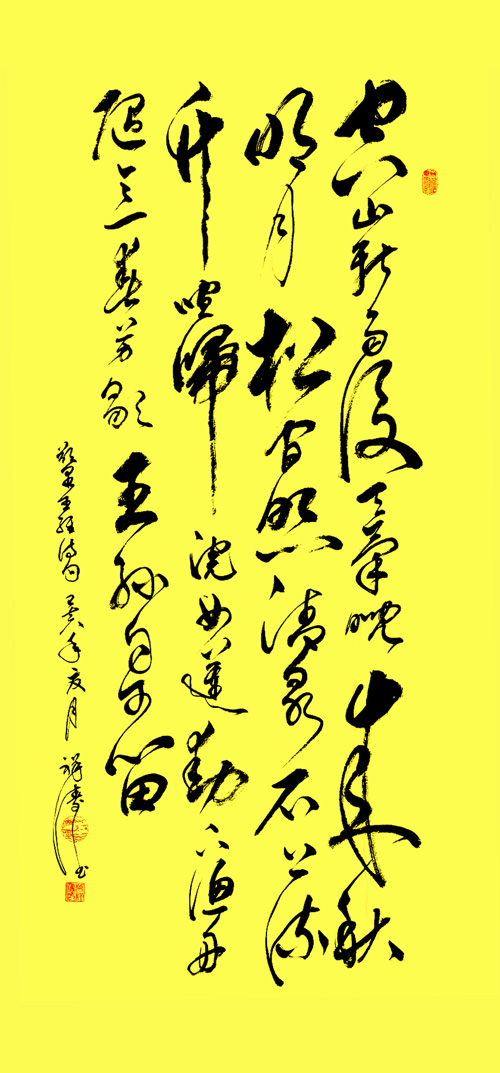 空山新雨後天氣晚來秋
明月松間照清泉石上流
竹喧歸浣女蓮動下漁舟
隨意春芳歇王孫自可留
王維詩句 年夏月 祥